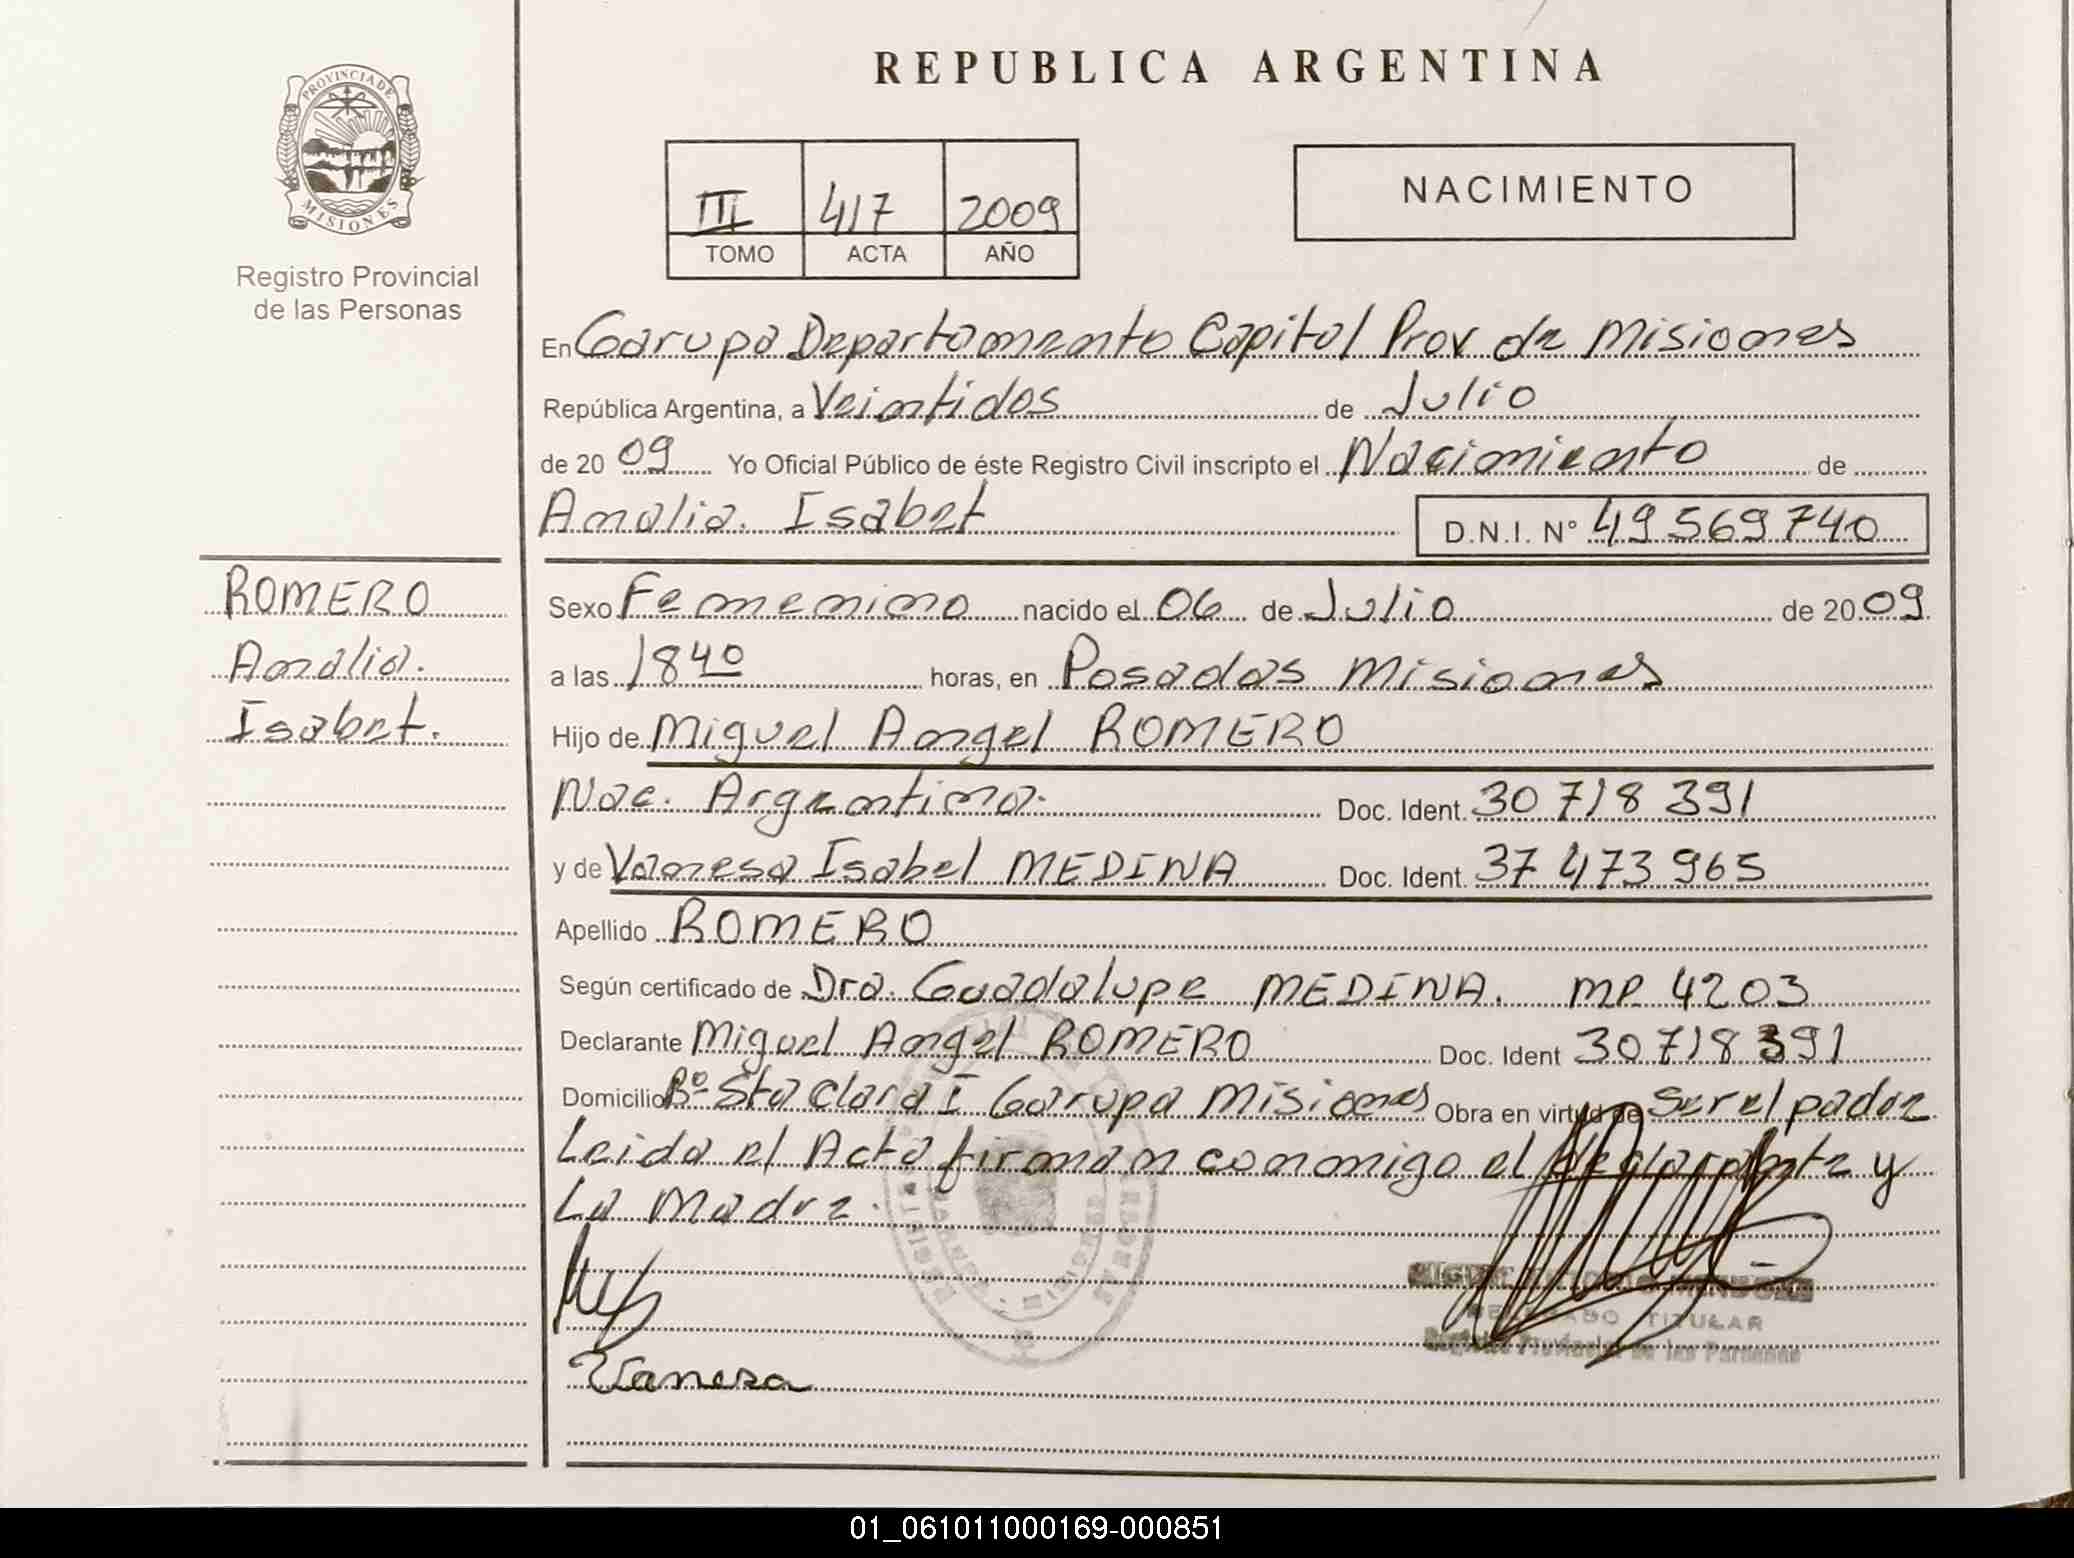 PROVINCIA DE
MISIONES
Registro Provincial
de las Personas
REPUBLICA ARGENTINA
III 417 2009
TOMO ACTA AÑO
NACIMIENTO
En Garupa Departamento Capital Prov de Misiones
República Argentina, a Veintidos de Julio
de 20 09 Yo Oficial Público de éste Registro Civil inscripto el Nacimiento de
Amalia. Isabet D.N.I. Nº 49 569 740
ROMERO
Amalia.
Isabet.
Sexo Femenino nacido el 06 de Julio de 20 09
a las 18 40 horas, en Posadas Misiones
Hijo de Miguel Angel ROMERO
Nac. Argentina. Doc. Ident. 30 718 391
y de Vanesa Isabel MEDINA Doc. Ident. 37 473 965
Apellido ROMERO
Según certificado de Dra. Guadalupe MEDINA. MP 4203
Declarante Miguel Angel ROMERO Doc. Ident 30 718 391
Domicilio Bº Sta Clara I Garupa Misiones Obra en virtud de ser el padre
Leida el Acta firman conmigo el declarante y
La Madre.
TITULAR
Registro Provincial de las Personas
Vanesa
01_061011000169-000851